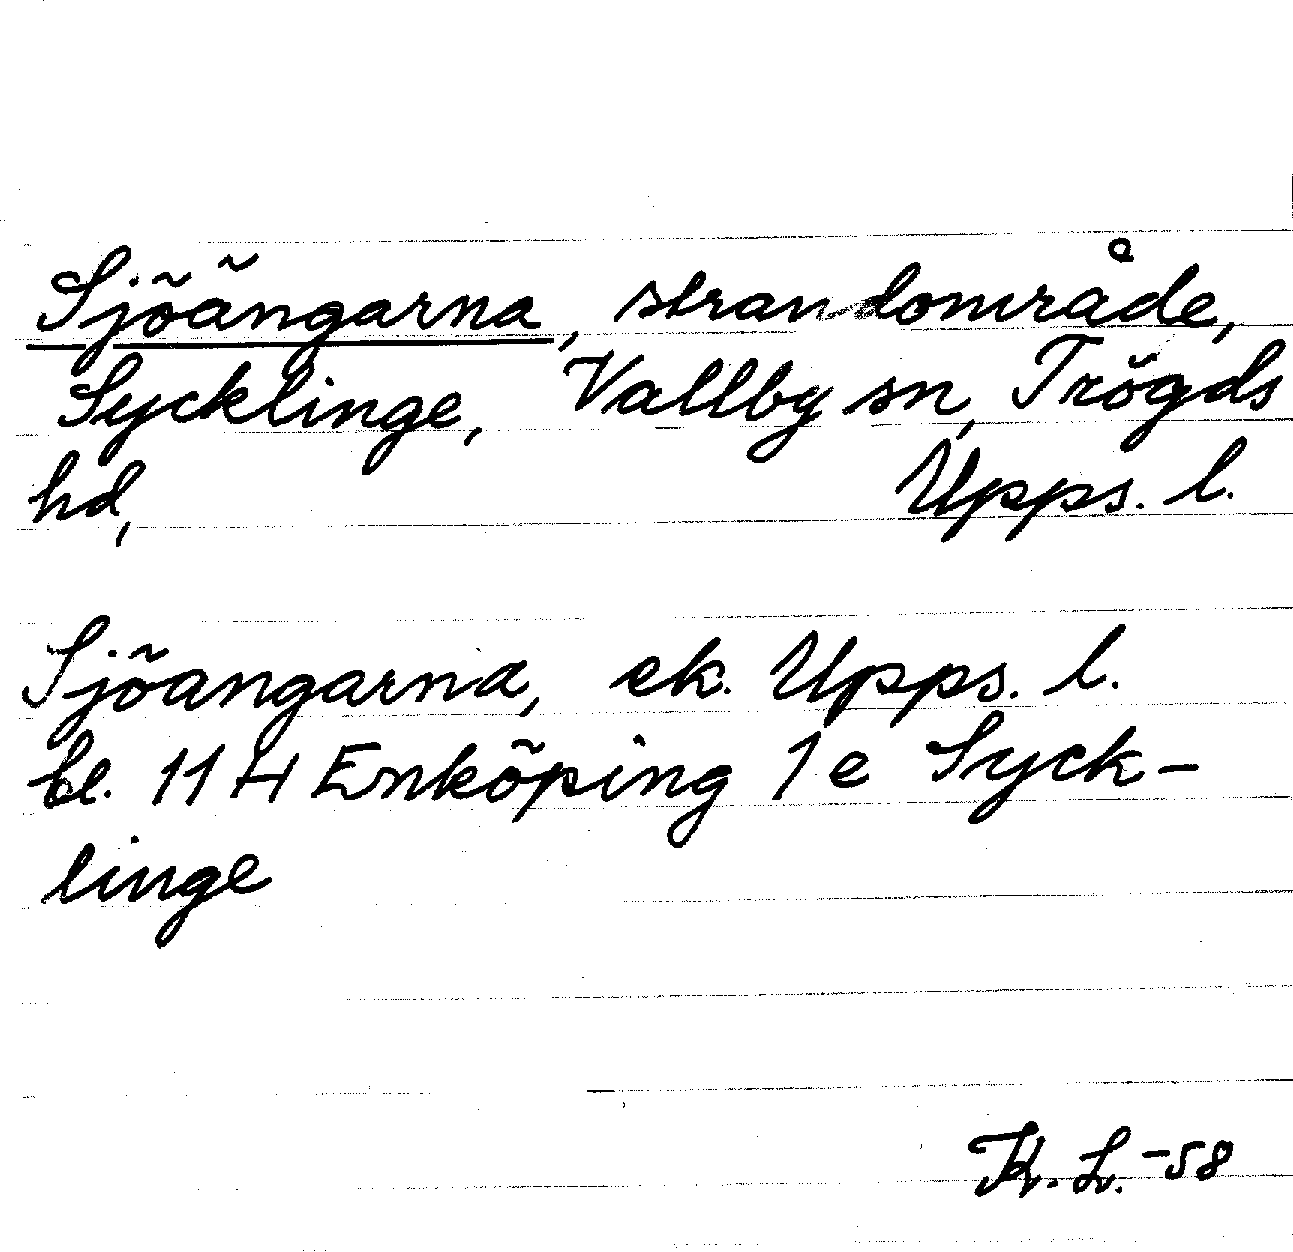 Sjöängarna, strandområde,
Sycklinge, Vallby sn, Trögds
hd, Upps. l.
Sjöangarna, ek. Upps. l.
bl. 11 H Enköping 1 e Syck-
linge
K. L. -58